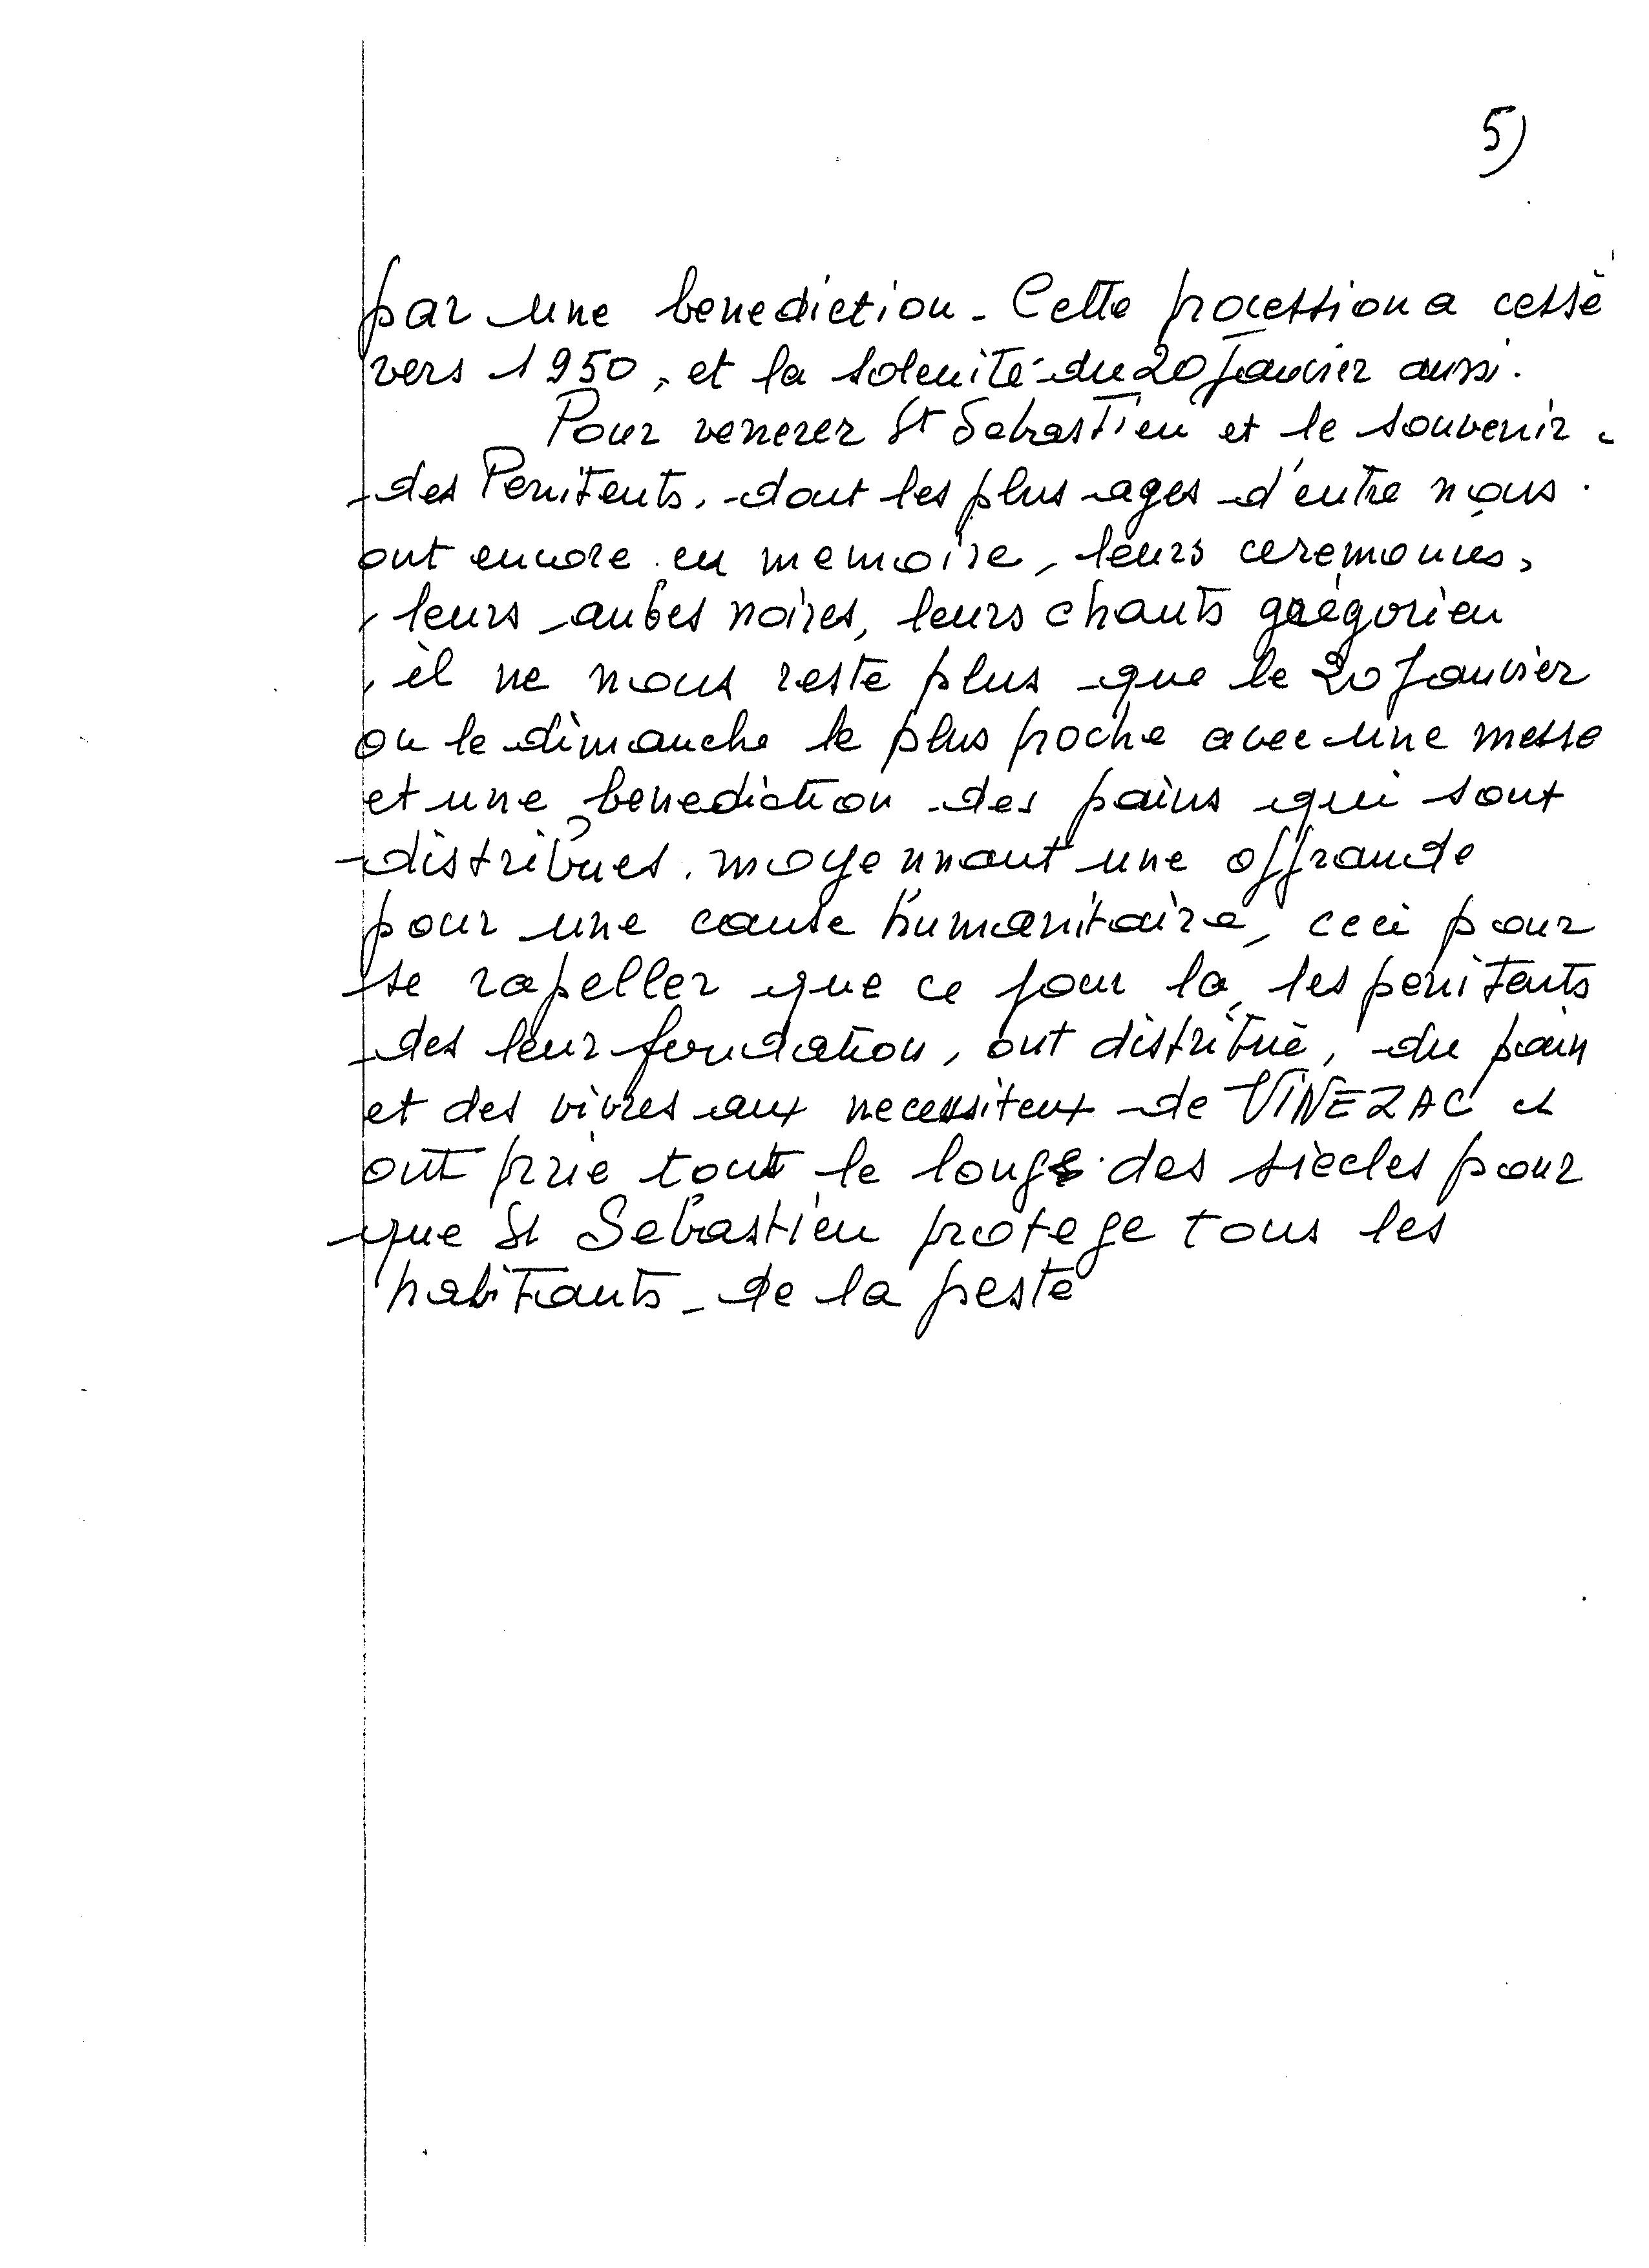 5)
par une benediction - Cette procession a cessé
vers 1950, et la solenité du 20 Janvier aussi.
Pour venerer St Sebastien et le souvenir
des Penitents, dont les plus ages d'entre nous
ont encore en memoire, leurs ceremonies,
leurs aubes noires, leurs chants grégorien
, il ne nous reste plus que le 20 Janvier
ou le dimanche le plus proche avec une messe
et une benediction des pains qui sont
distribues. moyennant une offrande
pour une cause humanitaire, ceci pour
se rapeller que ce jour la, les penitents
des leur fondation, ont distribué, du pain
et des vivres aux necessiteux de VINEZAC et
ont prie tout le long des siecles pour
que St Sebastien protege tous les
habitants de la peste